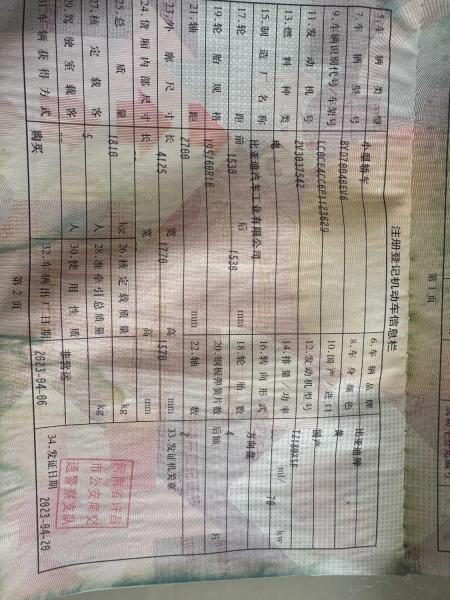 第1页
注册登记机动车信息栏
5.车辆类型 小型轿车 6.车辆品牌 比亚迪牌
7.车辆型号 BYD7004BEV6 8.车身颜色 黄
9.车辆识别代号/车架号 10.国产/进口 国产
11.发动机号 2V3037542 12.发动机型号 TZ180XSF
13.燃料种类 电 14.排量/功率 ml/ 70 kw
15.制造厂名称 比亚迪汽车工业有限公司 16.转向形式 方向盘
17.轮距 前 1530 后 1530 mm 18.轮胎数 4
19.轮胎规格 195/60R16 20.钢板弹簧片数 后轴 片
21.轴距 2700 mm 22.轴数 2
23.外廓尺寸 长 4125 宽 1770 高 1570 mm 33.发证机关章
24.货厢内部尺寸 长 宽 高 mm
25.总质量 1810 kg 26.核定载质量 kg
27.核定载客 5 人 28.准牵引总质量 kg
29.驾驶室载客 人 30.使用性质 非营运
31.车辆获得方式 购买 32.车辆出厂日期 2023-04-06 34.发证日期 2023-04-20
市公安局交
通警察支队
第2页